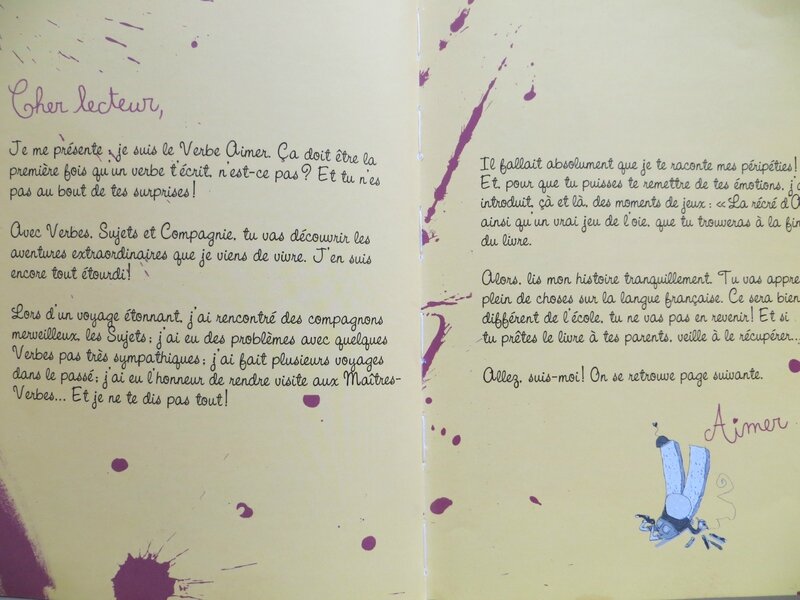 Cher lecteur,
Je me présente : je suis le Verbe Aimer. Ça doit être la
première fois qu'un verbe t'écrit, n'est-ce pas ? Et tu n'es
pas au bout de tes surprises !
Avec Verbes, Sujets et Compagnie, tu vas découvrir les
aventures extraordinaires que je viens de vivre. J'en suis
encore tout étourdi !
Lors d'un voyage étonnant, j'ai rencontré des compagnons
merveilleux, les Sujets ; j'ai eu des problèmes avec quelques
Verbes pas très sympathiques ; j'ai fait plusieurs voyages
dans le passé ; j'ai eu l'honneur de rendre visite aux Maîtres-
Verbes... Et je ne te dis pas tout !
Il fallait absolument que je te raconte mes péripéties !
Et, pour que tu puisses te remettre de tes émotions, j'a
introduit, çà et là, des moments de jeux : « La récré d'A
ainsi qu'un vrai jeu de l'oie, que tu trouveras à la fin
du livre.
Alors, lis mon histoire tranquillement. Tu vas appre
plein de choses sur la langue française. Ce sera bien
différent de l'école, tu ne vas pas en revenir ! Et si
tu prêtes le livre à tes parents, veille à le récupérer...
Allez, suis-moi ! On se retrouve page suivante.
Aimer